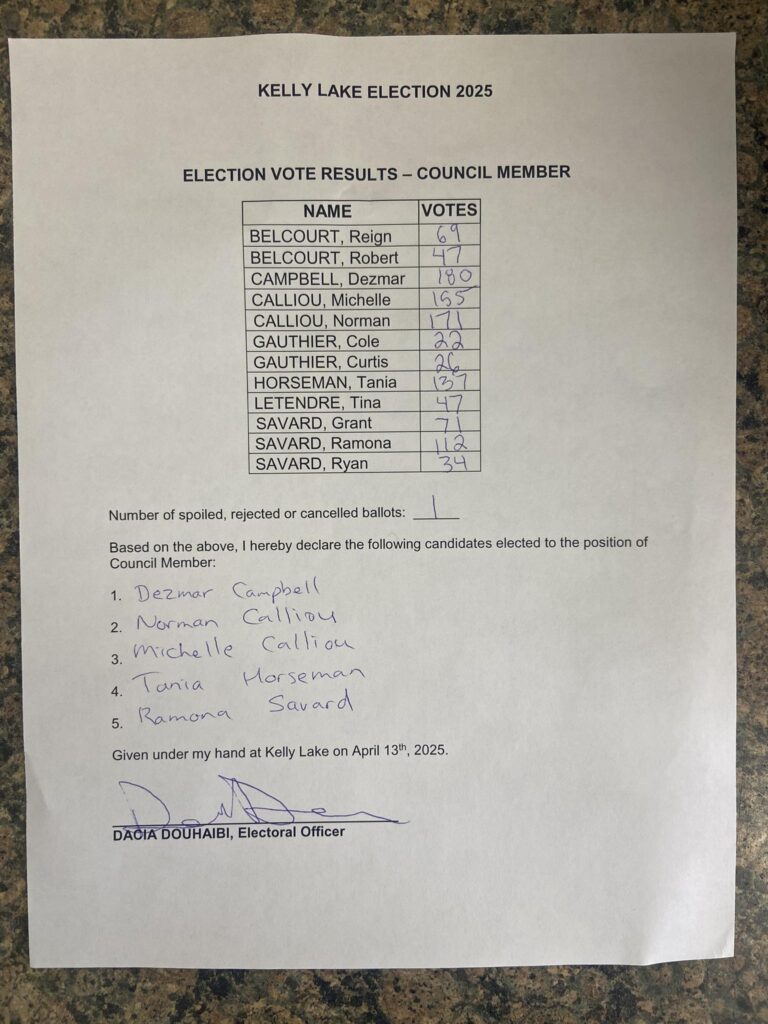 KELLY LAKE ELECTION 2025
ELECTION VOTE RESULTS – COUNCIL MEMBER
NAME VOTES
BELCOURT, Reign 69
BELCOURT, Robert 47
CAMPBELL, Dezmar 180
CALLIOU, Michelle 155
CALLIOU, Norman 171
GAUTHIER, Cole 22
GAUTHIER, Curtis 26
HORSEMAN, Tania 137
LETENDRE, Tina 47
SAVARD, Grant 71
SAVARD, Ramona 112
SAVARD, Ryan 34
Number of spoiled, rejected or cancelled ballots: 1
Based on the above, I hereby declare the following candidates elected to the position of
Council Member:
1. Dezmar Campbell
2. Norman Calliou
3. Michelle Calliou
4. Tania Horseman
5. Ramona Savard
Given under my hand at Kelly Lake on April 13th, 2025.
DACIA DOUHAIBI, Electoral Officer